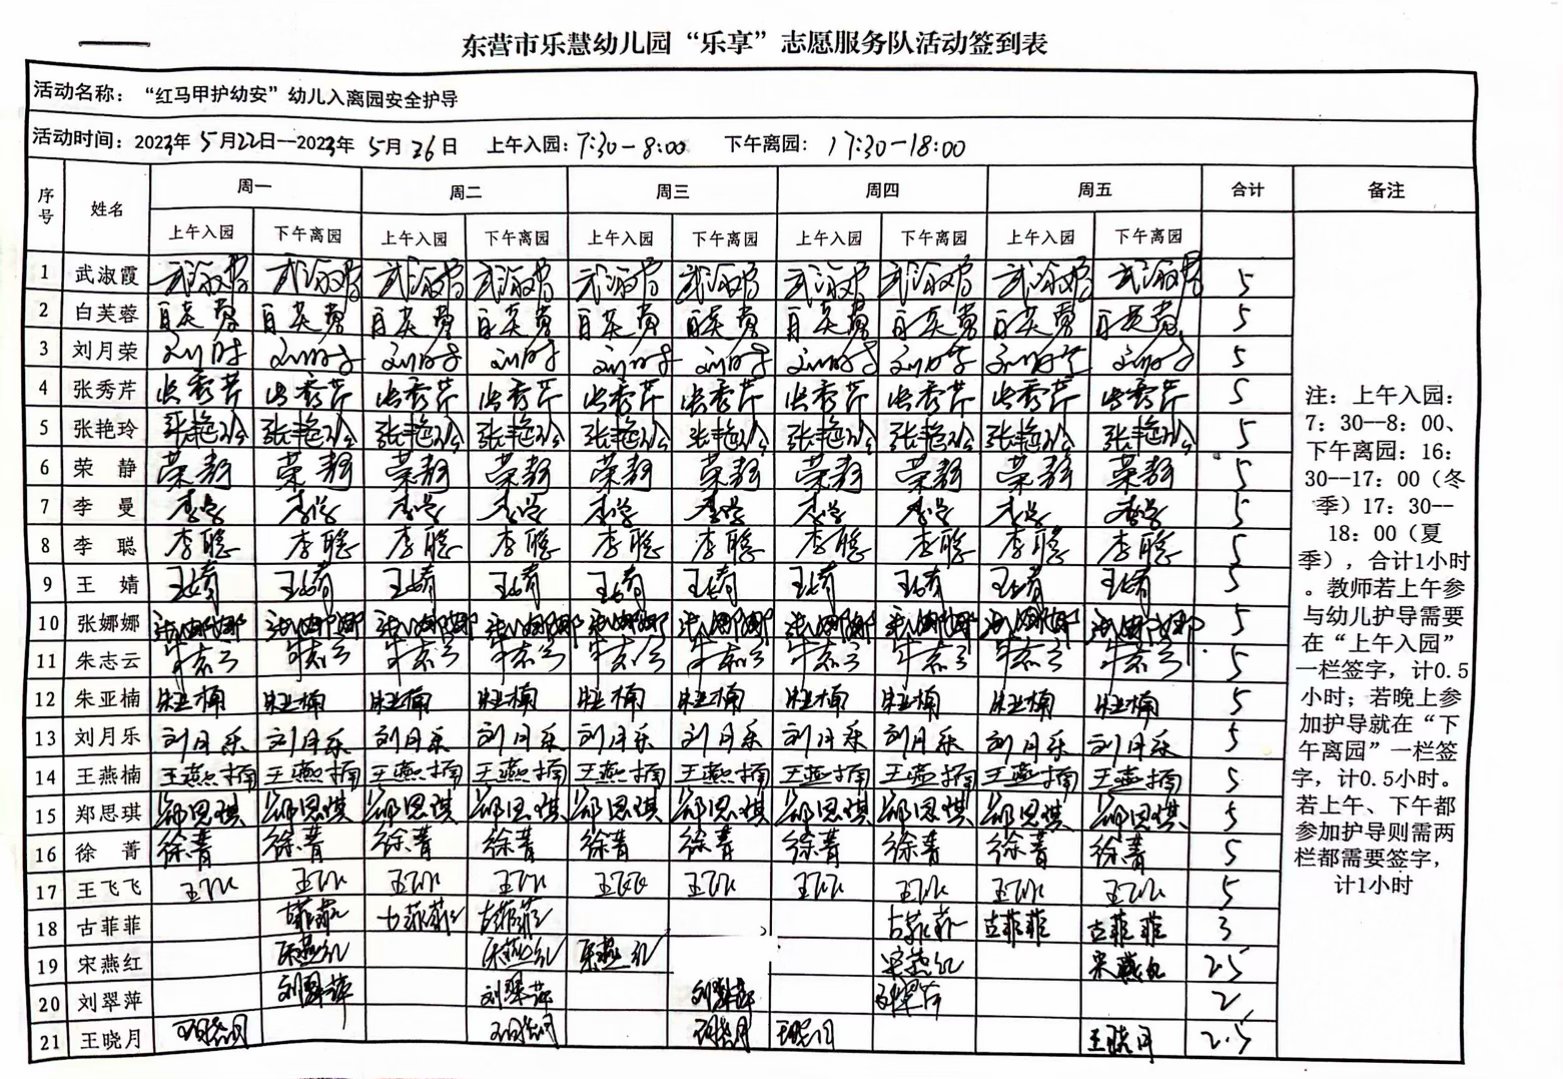 东营市乐慧幼儿园“乐享”志愿服务队活动签到表
活动名称：“红马甲护幼安”幼儿入离园安全护导
活动时间：2023年 5月22日--2023年 5月26日 上午入园：7:30-8:00 下午离园：17:30-18:00
序号 姓名 周一 周二 周三 周四 周五 合计 备注
上午入园 下午离园 上午入园 下午离园 上午入园 下午离园 上午入园 下午离园 上午入园 下午离园
1 武淑霞 武淑霞 武淑霞 武淑霞 武淑霞 武淑霞 武淑霞 武淑霞 武淑霞 武淑霞 武淑霞 5
2 白芙蓉 白芙蓉 白芙蓉 白芙蓉 白芙蓉 白芙蓉 白芙蓉 白芙蓉 白芙蓉 白芙蓉 白芙蓉 5
3 刘月荣 5
4 张秀芹 张秀芹 张秀芹 张秀芹 张秀芹 张秀芹 张秀芹 张秀芹 张秀芹 张秀芹 张秀芹 5
5 张艳玲 张艳玲 张艳玲 张艳玲 张艳玲 张艳玲 张艳玲 张艳玲 张艳玲 张艳玲 张艳玲 5
6 荣静 荣静 荣静 荣静 荣静 荣静 荣静 荣静 荣静 荣静 荣静 5
7 李曼 李曼 李曼 李曼 李曼 李曼 李曼 李曼 李曼 李曼 李曼 5
8 李聪 李聪 李聪 李聪 李聪 李聪 李聪 李聪 李聪 李聪 李聪 5
9 王婧 王婧 王婧 王婧 王婧 王婧 王婧 王婧 王婧 王婧 王婧 5
10 张娜娜 张娜娜 张娜娜 张娜娜 张娜娜 张娜娜 张娜娜 张娜娜 张娜娜 张娜娜 张娜娜 5
11 朱志云 朱志云 朱志云 朱志云 朱志云 朱志云 朱志云 朱志云 朱志云 朱志云 朱志云 5
12 朱亚楠 朱亚楠 朱亚楠 朱亚楠 朱亚楠 朱亚楠 朱亚楠 朱亚楠 朱亚楠 朱亚楠 朱亚楠 5
13 刘月乐 刘月乐 刘月乐 刘月乐 刘月乐 刘月乐 刘月乐 刘月乐 刘月乐 刘月乐 刘月乐 5
14 王燕楠 王燕楠 王燕楠 王燕楠 王燕楠 王燕楠 王燕楠 王燕楠 王燕楠 王燕楠 王燕楠 5
15 郑思琪 郑思琪 郑思琪 郑思琪 郑思琪 郑思琪 郑思琪 郑思琪 郑思琪 郑思琪 郑思琪 5
16 徐菁 徐菁 徐菁 徐菁 徐菁 徐菁 徐菁 徐菁 徐菁 徐菁 徐菁 5
17 王飞飞 王飞飞 王飞飞 王飞飞 王飞飞 王飞飞 王飞飞 王飞飞 王飞飞 王飞飞 王飞飞 5
18 古菲菲 古菲菲 古菲菲 古菲菲 古菲菲 古菲菲 古菲菲 3
19 宋燕红 宋燕红 宋燕红 宋燕红 宋燕红 宋燕红 2.5
20 刘翠萍 刘翠萍 刘翠萍 刘翠萍 刘翠萍 2
21 王晓月 王晓月 王晓月 王晓月 王晓月 王晓月 2.5
注：上午入园：
7：30--8：00、
下午离园：16：
30--17：00（冬
季）17：30--
18：00（夏
季），合计1小时
。教师若上午参
与幼儿护导需要
在“上午入园”
一栏签字，计0.5
小时；若晚上参
加护导就在“下
午离园”一栏签
字，计0.5小时。
若上午、下午都
参加护导则需两
栏都需要签字，
计1小时